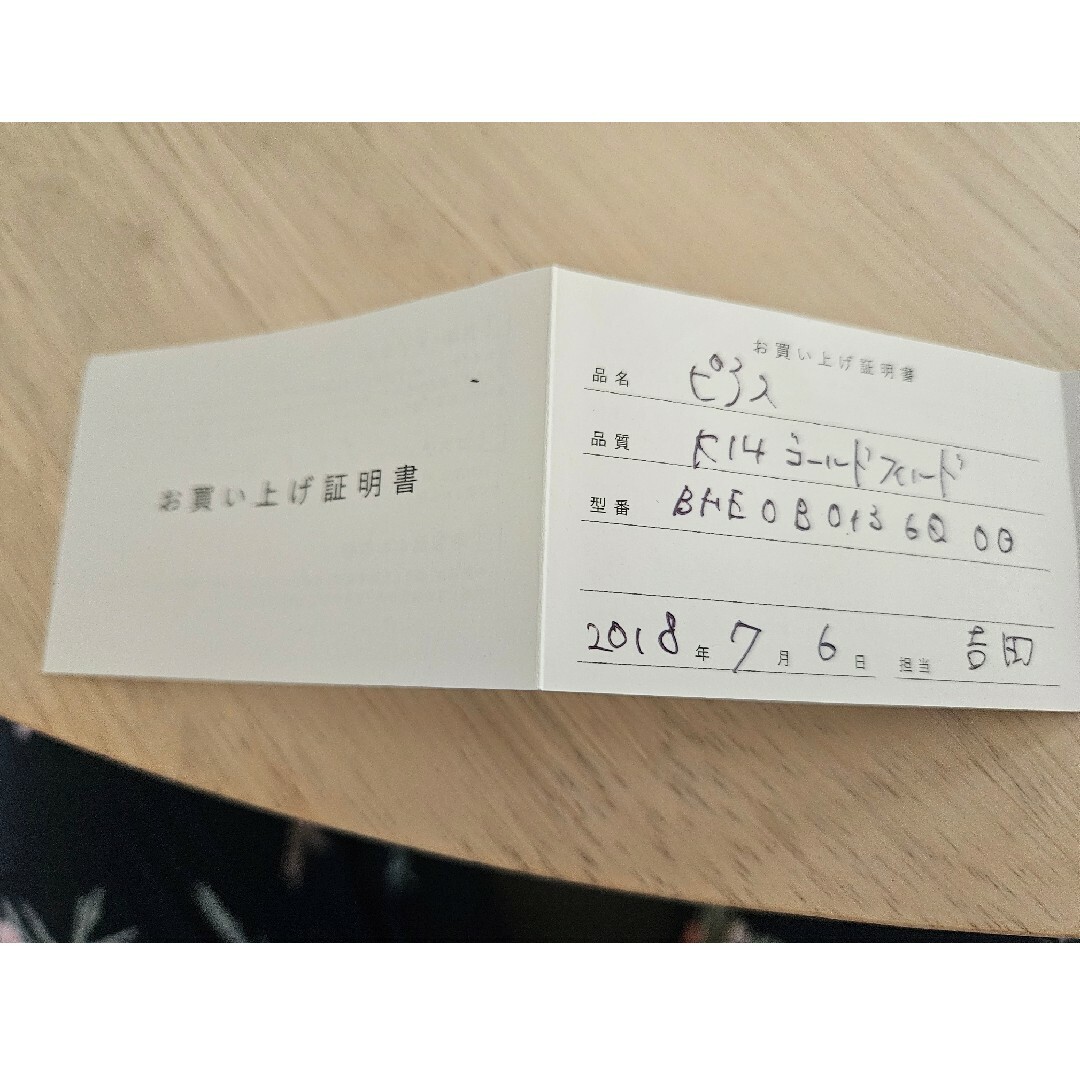 お買い上げ証明書
お買い上げ証明書
品名 ピアス
品質 K14 ゴールドフィルド
型番
2018年 7月 6日 担当 吉田